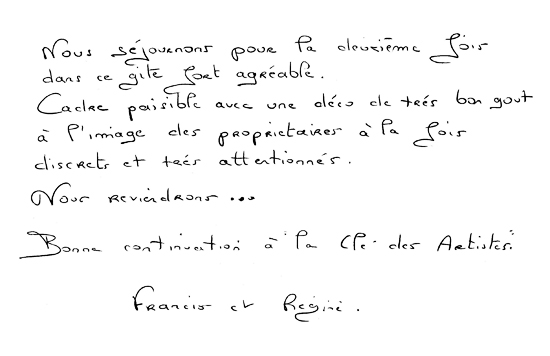 Nous séjournons pour la deuxième fois
dans ce gîte fort agréable.
Cadre paisible avec une déco de très bon gout
à l'image des propriétaires à la fois
discrets et très attentionnés.
Nous reviendrons ...
Bonne continuation à "la Clé des Artistes".
Francis et Régine.